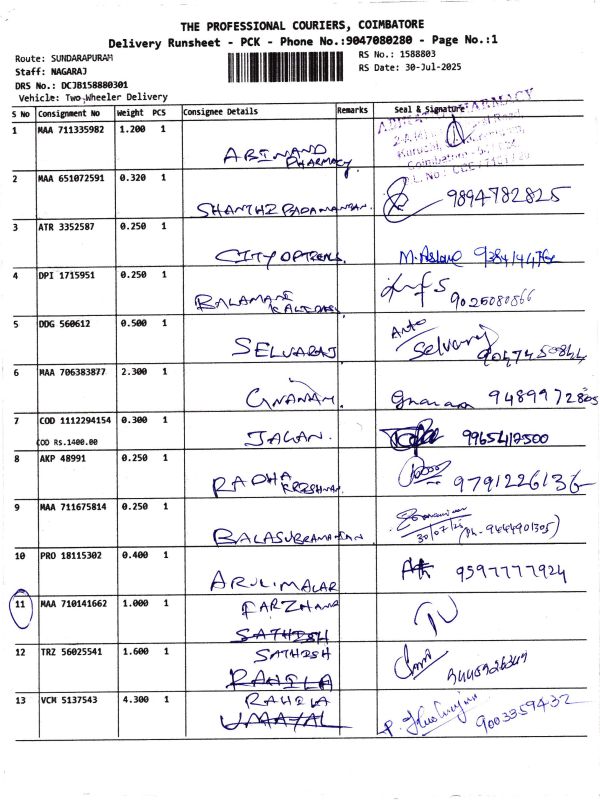 THE PROFESSIONAL COURIERS, COIMBATORE
Delivery Runsheet - PCK - Phone No.:9047080280 - Page No.:1
Route: SUNDARAPURAM
RS No.: 1588803
Staff: NAGARAJ
RS Date: 30-Jul-2025
DRS No.: DCJB158880301
Vehicle: Two Wheeler Delivery
S No Consignment No Weight PCS Consignee Details Remarks Seal & Signature
1 MAA 711335982 1.200 1
ABINAND
PHARMACY
2 MAA 651072591 0.320 1
SHANTHI 9894782825
3 ATR 3352587 0.250 1
CITY OPTICALS.
4 DPI 1715951 0.250 1
BALAMANI
9025080866
5 DDG 560612 0.500 1
SELVARAJ Selvaraj
6 MAA 706383877 2.300 1
GNANAM 9489972805
7 COD 1112294154 0.300 1
COD Rs.1400.00
JAGAN. 9965412500
8 AKP 48991 0.250 1
RADHA
KRISHNAN. 9791226136
9 MAA 711675814 0.250 1
BALASUBRAMANIAN
10 PRO 18115302 0.400 1
ARULMALAR 9597777924
11 MAA 710141662 1.000 1
FARZHANA
SATHISH
12 TRZ 56025541 1.600 1
SATHISH
RAHILA
13 VCM 5137543 4.300 1
RAHILA
UMAYAL 9003359432